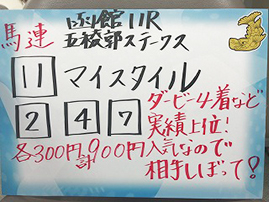 馬連 函館11R
五稜郭ステークス
11 マイスタイル
2 4 7
ダービー4着など
実績上位!
人気なので
相手しぼって!
各300円 計900円